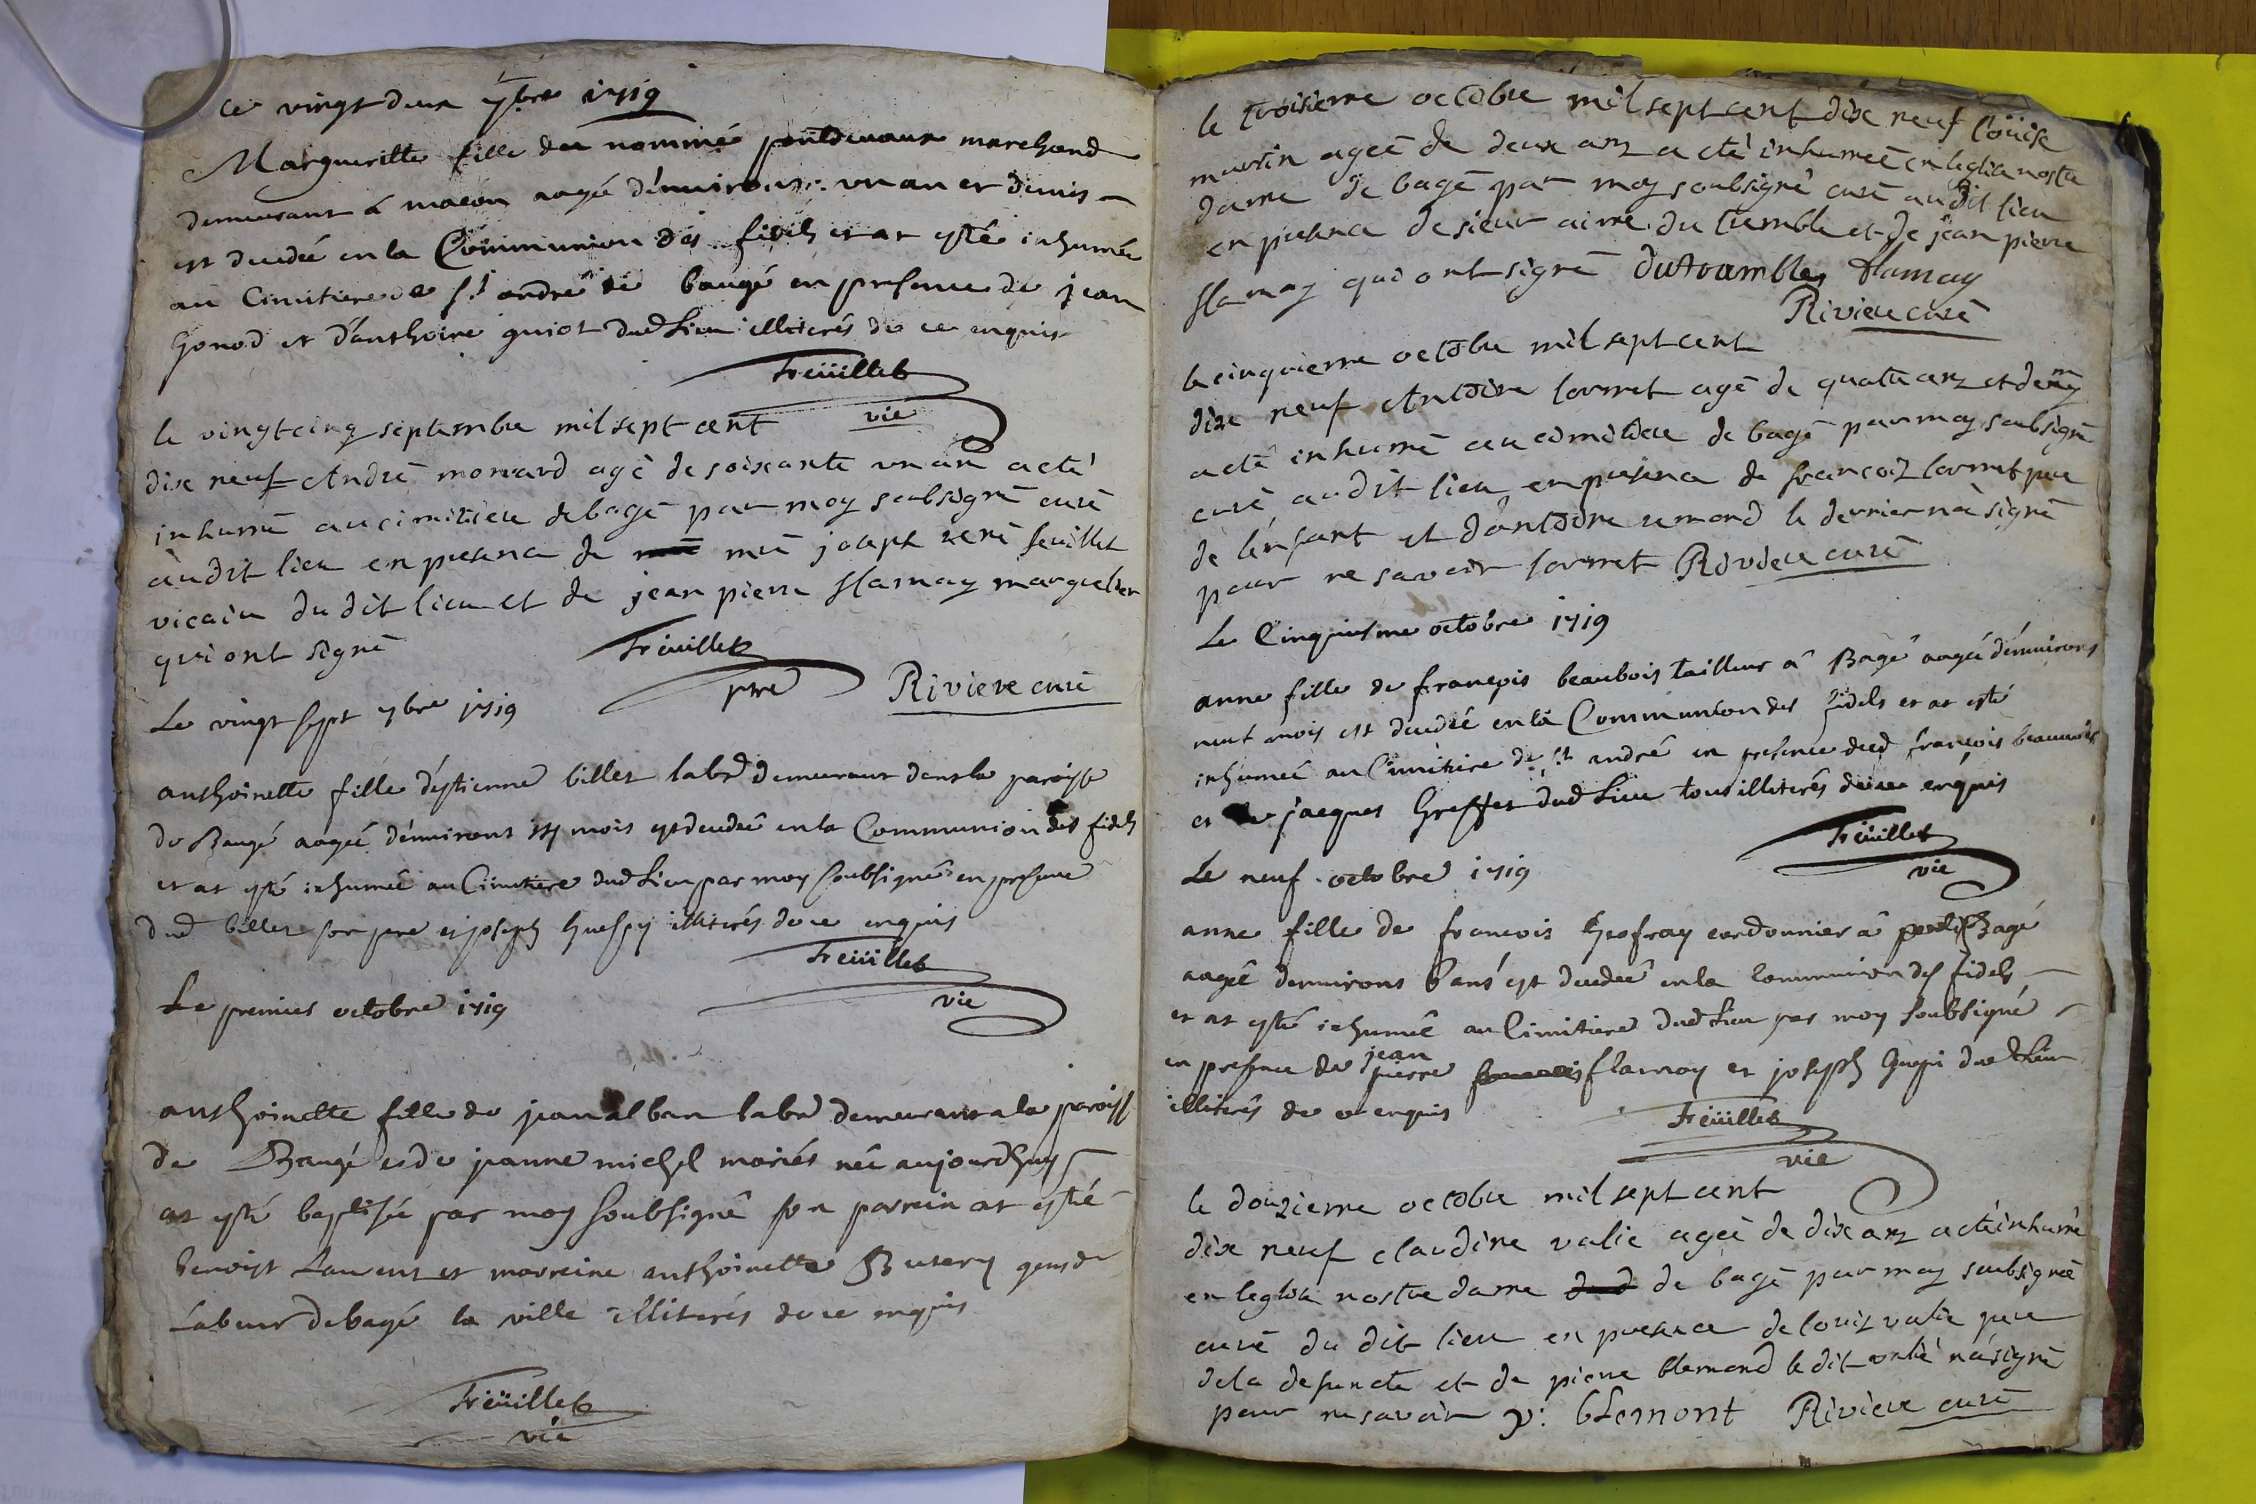 ce vingt deux 7bre 1719
Margueritte fille du nommé pontdevaux marchand
demeurant à macon aagée d'environs un an et demis
est decedée en la Communion des fidels et at esté inhumée
au Cimitiere de st andré de baugé en presence de jean
Gonod et d'anthoine guiot dud Lieu illiterés de ce enquis
Freüillet
vic
le vingt cinq septembre mil sept cent
dixe neuf André morard agé de soixante un an a eté
inhumé au cimitiere de bagé par moy soubsigné curé
audit lieu en presence de mre joseph rené feuillet
vicaire du dit lieu et de jean pierre flamay marguelier
qui ont signé
Freüillet
ptre
Riviere curé
Le vingt sept 7bre 1719
anthoinette fille d'estienne billet labr demeurant dans la paroisse
de Baugé aagée d'environs mois est decedée en la Communion des fidels
et at esté inhumée au Cimitiere dud Lieu par moy soubsigné en presence
dud billet son pere et joseph Guespy illiterés de ce enquis
Freüillet
vic
Le premier octobre 1719
anthoinette fille de jean alban labr demeurant a la paroisse
de Baugé et de jeanne michel mariés née aujourdhuy
at esté baptisée par moy soubsigné son parrein at esté
benoist Laurent et marreine anthoinette Butery gens de
Labeur de bagé la ville illiterés de ce enquis
Freüillet
vic
le troisieme octobre mil sept cent dixe neuf Loüise
morin ageé de deux anz a eté inhumeé en leglise nostre
dame de bagé par moy soubsigné curé audit lieu
en presence de sieur aimé du tremble et de jean pierre
flamay qui ont signé Dutrambley flamay
Riviere curé
le cinquieme octobre mil sept cent
dixe neuf Antoine lorret agé de quatre anz et demy
a eté inhumé au cimitiere de bagé par moy soubsigné
curé audit lieu en presence de francoiz lorret pere
de l'enfant et d'antoine remond le dernier n'a signé
pour ne savoir lorret Riviere curé
Le Cinquiesme octobre 1719
anne fille de françois beaubois tailleur à Bagé aagée d'environs
neuf mois est decedée en la Communion des fidels et at esté
inhumée au Cimitiere de st andré en presence dud françois beaubois
et jacques Greffet dud Lieu tous illiterés de ce enquis
Freüillet
vic
Le neuf octobre 1719
anne fille de francois Geofray cordonnier à Bagé
aagée denvirons 6 ans est decedée en la Communion des fidels
et at esté inhumée au Cimitiere dud Lieu par moy soubsigné
en presence de jean
pierre flamay et joseph Guepi dud Lieu
illiterés de ce enquis
Freüillet
vic
le douzieme octobre mil sept cent
dixe neuf claudine valie ageé de dix anz a eté inhumé
en leglise nostre dame de bagé par moy soubsigneé
curé du dit lieu en presence de louiz valie pere
de la defuncte et de pierre blemond le dit valié n'a signé
pour ne savoir p: blemont Riviere curé